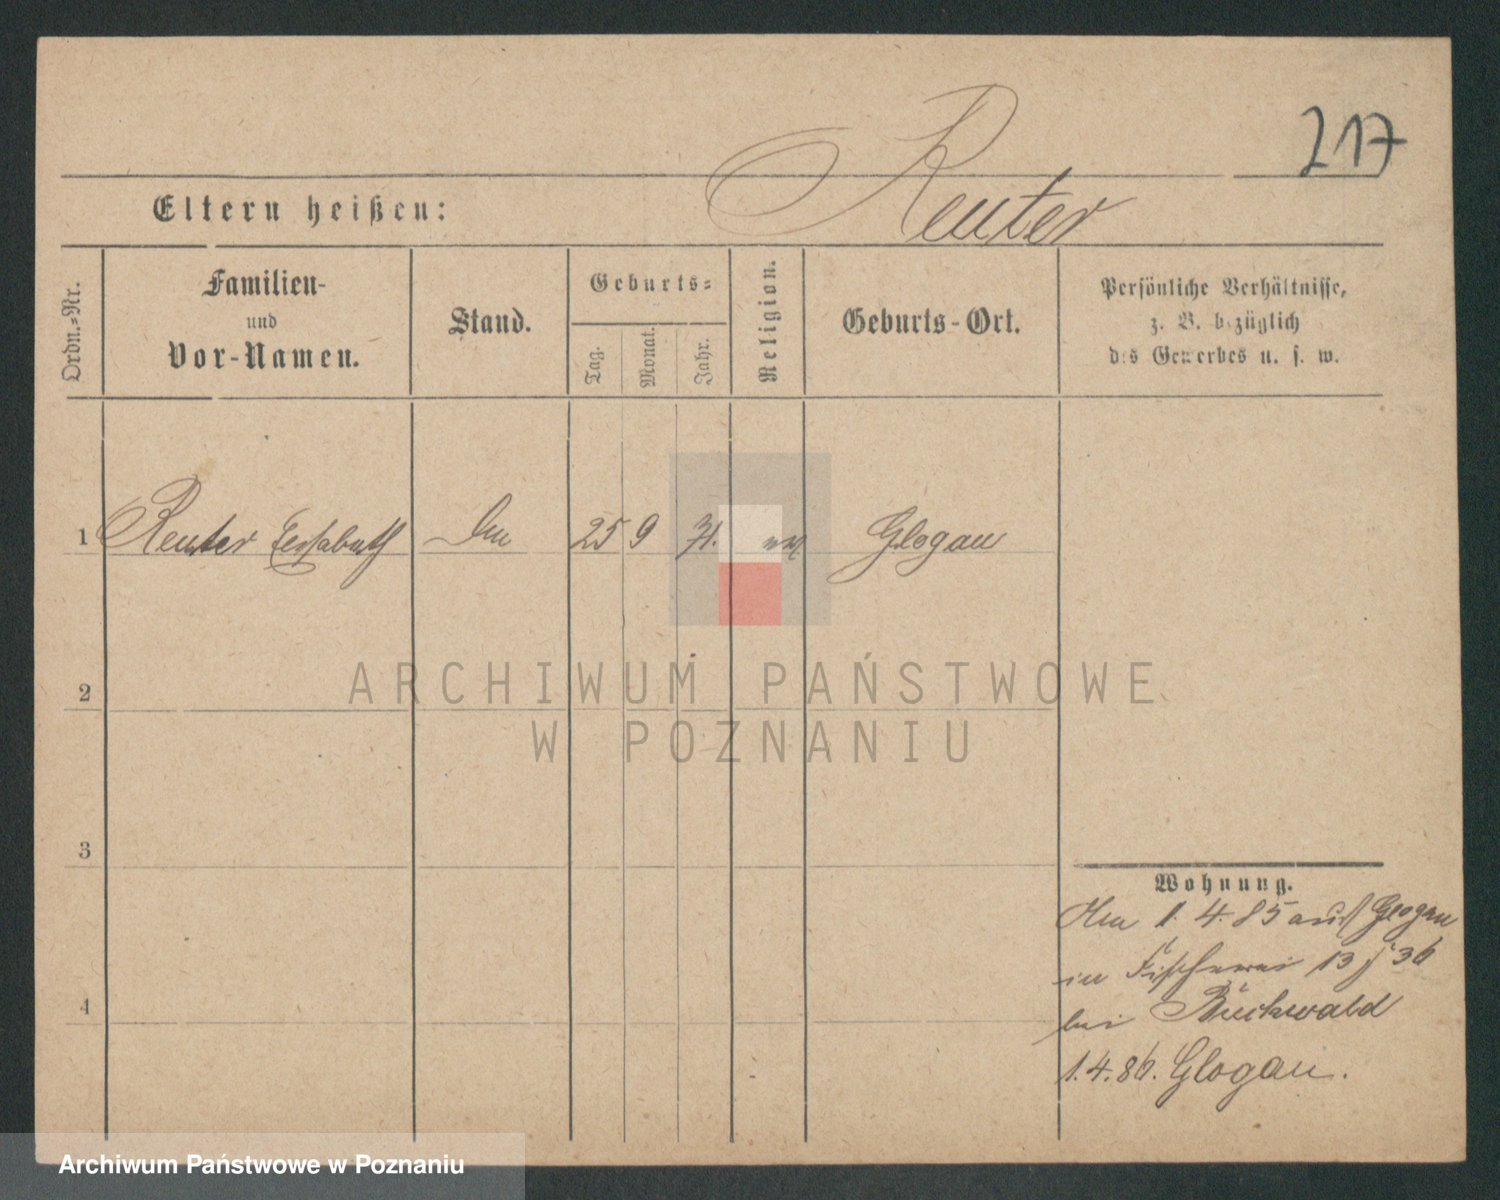 217
Reuter
Eltern heißen:
Ordn.-Nr.
Familien-
und
Vor-Namen.
Stand.
Geburts-
Tag.
Monat.
Jahr.
Religion.
Geburts-Ort.
Persönliche Verhältnisse,
z. B. bezüglich
des Gewerbes u. s. w.
1 Reuter 25 9 71. Glogau
2
3
4
Wohnung.
1. 4. 85 aus Glogau
in Fischerei 13
bei Buckwald
1.4.86. Glogau.
ARCHIWUM PAŃSTWOWE
W POZNANIU
Archiwum Państwowe w Poznaniu